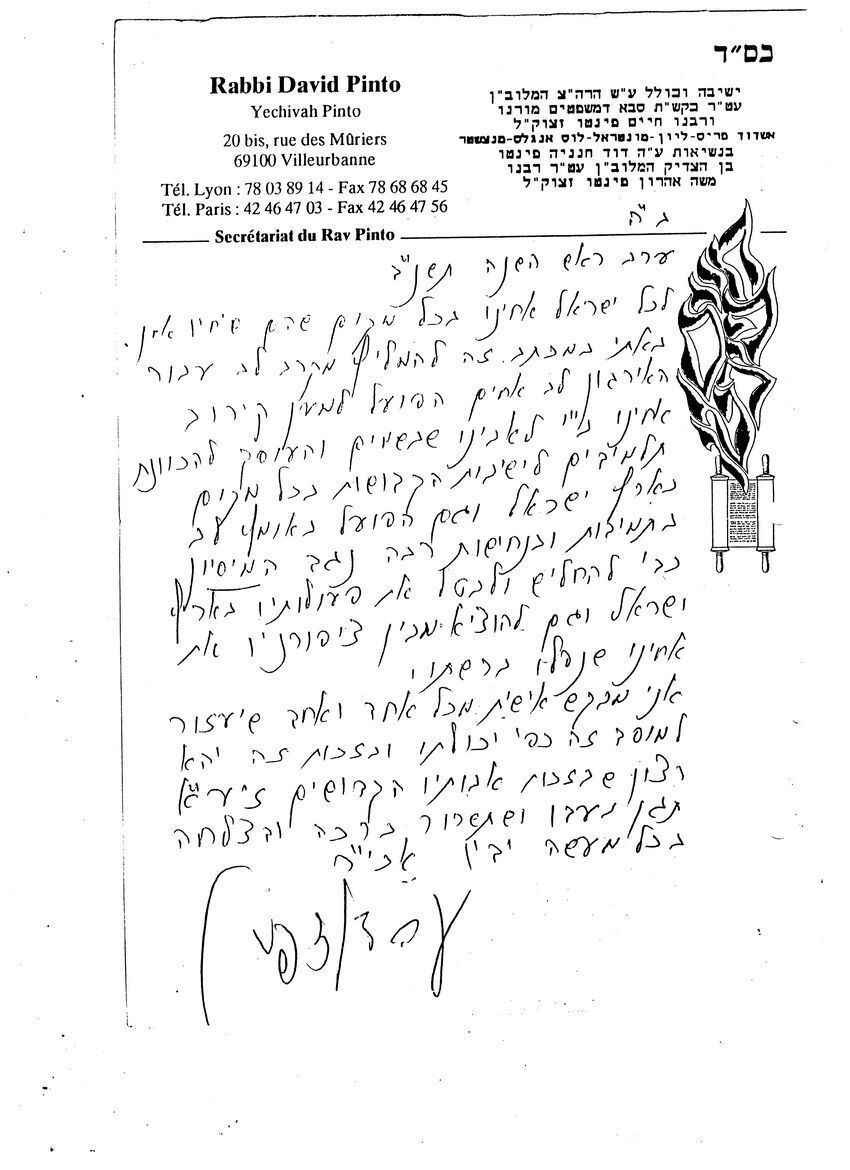 בס״ד
Rabbi David Pinto
Yechivah Pinto
20 bis, rue des Mûriers
69100 Villeurbanne
Tél. Lyon : 78 03 89 14 - Fax 78 68 68 45
Tél. Paris : 42 46 47 03 - Fax 42 46 47 56
Secrétariat du Rav Pinto
ישיבה וכולל ע״ש הרה״צ המלוב״ן
עט״ר בקש״ת סבא דמשפטים מורנו
ורבנו חיים פינטו זצוק״ל
אשדוד פריס-ליון-מונטראל-לוס אנגלס-מנצשטר
בנשיאות ע״ה דוד חנניה פינטו
בן הצדיק המלוב״ן עט״ר רבנו
משה אהרון פינטו זצוק״ל
ב״ה
ערב ראש השנה תשנ״ב
לכל ישראל אחינו בכל מקום שהם שיחיו
באתי במכתב זה להמליץ מקרב לב עבור
האירגון לב אחים הפועל למען קירוב
אחינו בנ״י לאבינו שבשמים והעוסק להכוונת
תלמידים לישיבות הקדושות בכל מקום
בארץ ישראל וגם הפועל באומץ לב
בתמידות ובנחישות רבה נגד המיסיון
כדי להחליש ולבטל את פעולותיו בארץ
ישראל וגם להוציא מבין ציפורניו את
אחינו שנפלו ברשתו.
אני מבקש אישית מכל אחד ואחד שיעזור
למוסד זה כפי יכולתו ובזכות זה יהא
רצון שבזכות אבותיו הקדושים זיע״א
תגן בעבו ושתשרור ברכה ובצלחה
בכל מעשה ידיו אכי״ר
ע״ה דוד פינטו